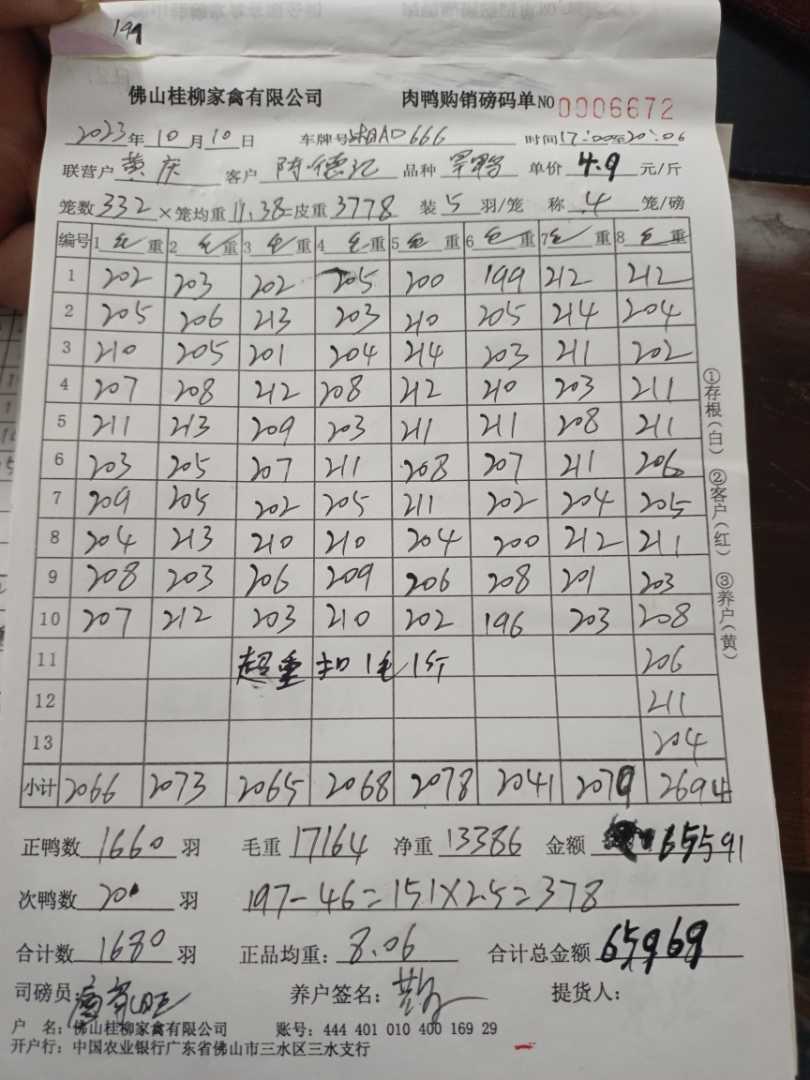 199
佛山桂柳家禽有限公司 肉鸭购销磅码单 NO 0006672
2023年10月10日 车牌号湘AD666 时间17:00至20:06
联营户 黄庆 客户 陈德记 品种 单价 4.9 元/斤
笼数 332 ×笼均重 11.38=皮重 3778 装 5 羽/笼 称 4 笼/磅
编号 1 毛重 2 毛重 3 毛重 4 毛重 5 毛重 6 毛重 7 毛重 8 毛重
1 202 203 202 205 200 199 212 212
2 205 206 213 203 210 205 214 204
3 210 205 201 204 214 203 211 202
4 207 208 212 208 212 210 203 211
5 211 213 209 203 211 211 208 211
6 203 205 207 211 208 207 211 206
7 209 205 202 205 211 202 204 205
8 204 213 210 210 204 200 212 211
9 208 203 206 209 206 208 201 203
10 207 212 203 210 202 196 203 208
11 超重扣1毛1斤 206
12 211
13 204
小计 2066 2073 2065 2068 2078 2041 2079 2694
①存根(白) ②客户(红) ③养户(黄)
正鸭数 1660 羽 毛重 17164 净重 13386 金额 65591
次鸭数 20 羽 197-46=151×2.5=378
合计数 1680 羽 正品均重: 8.06 合计总金额 65969
司磅员: 养户签名: 提货人:
户 名: 佛山桂柳家禽有限公司 账号: 444 401 010 400 169 29
开户行: 中国农业银行广东省佛山市三水区三水支行